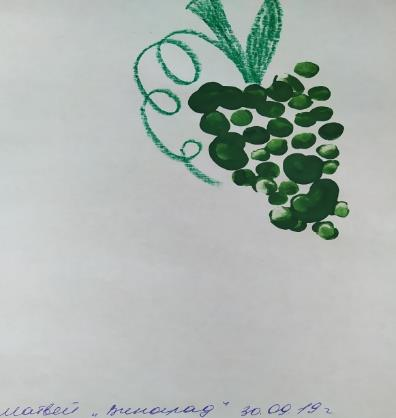 Матвей „Виноград" 30.09 19 г